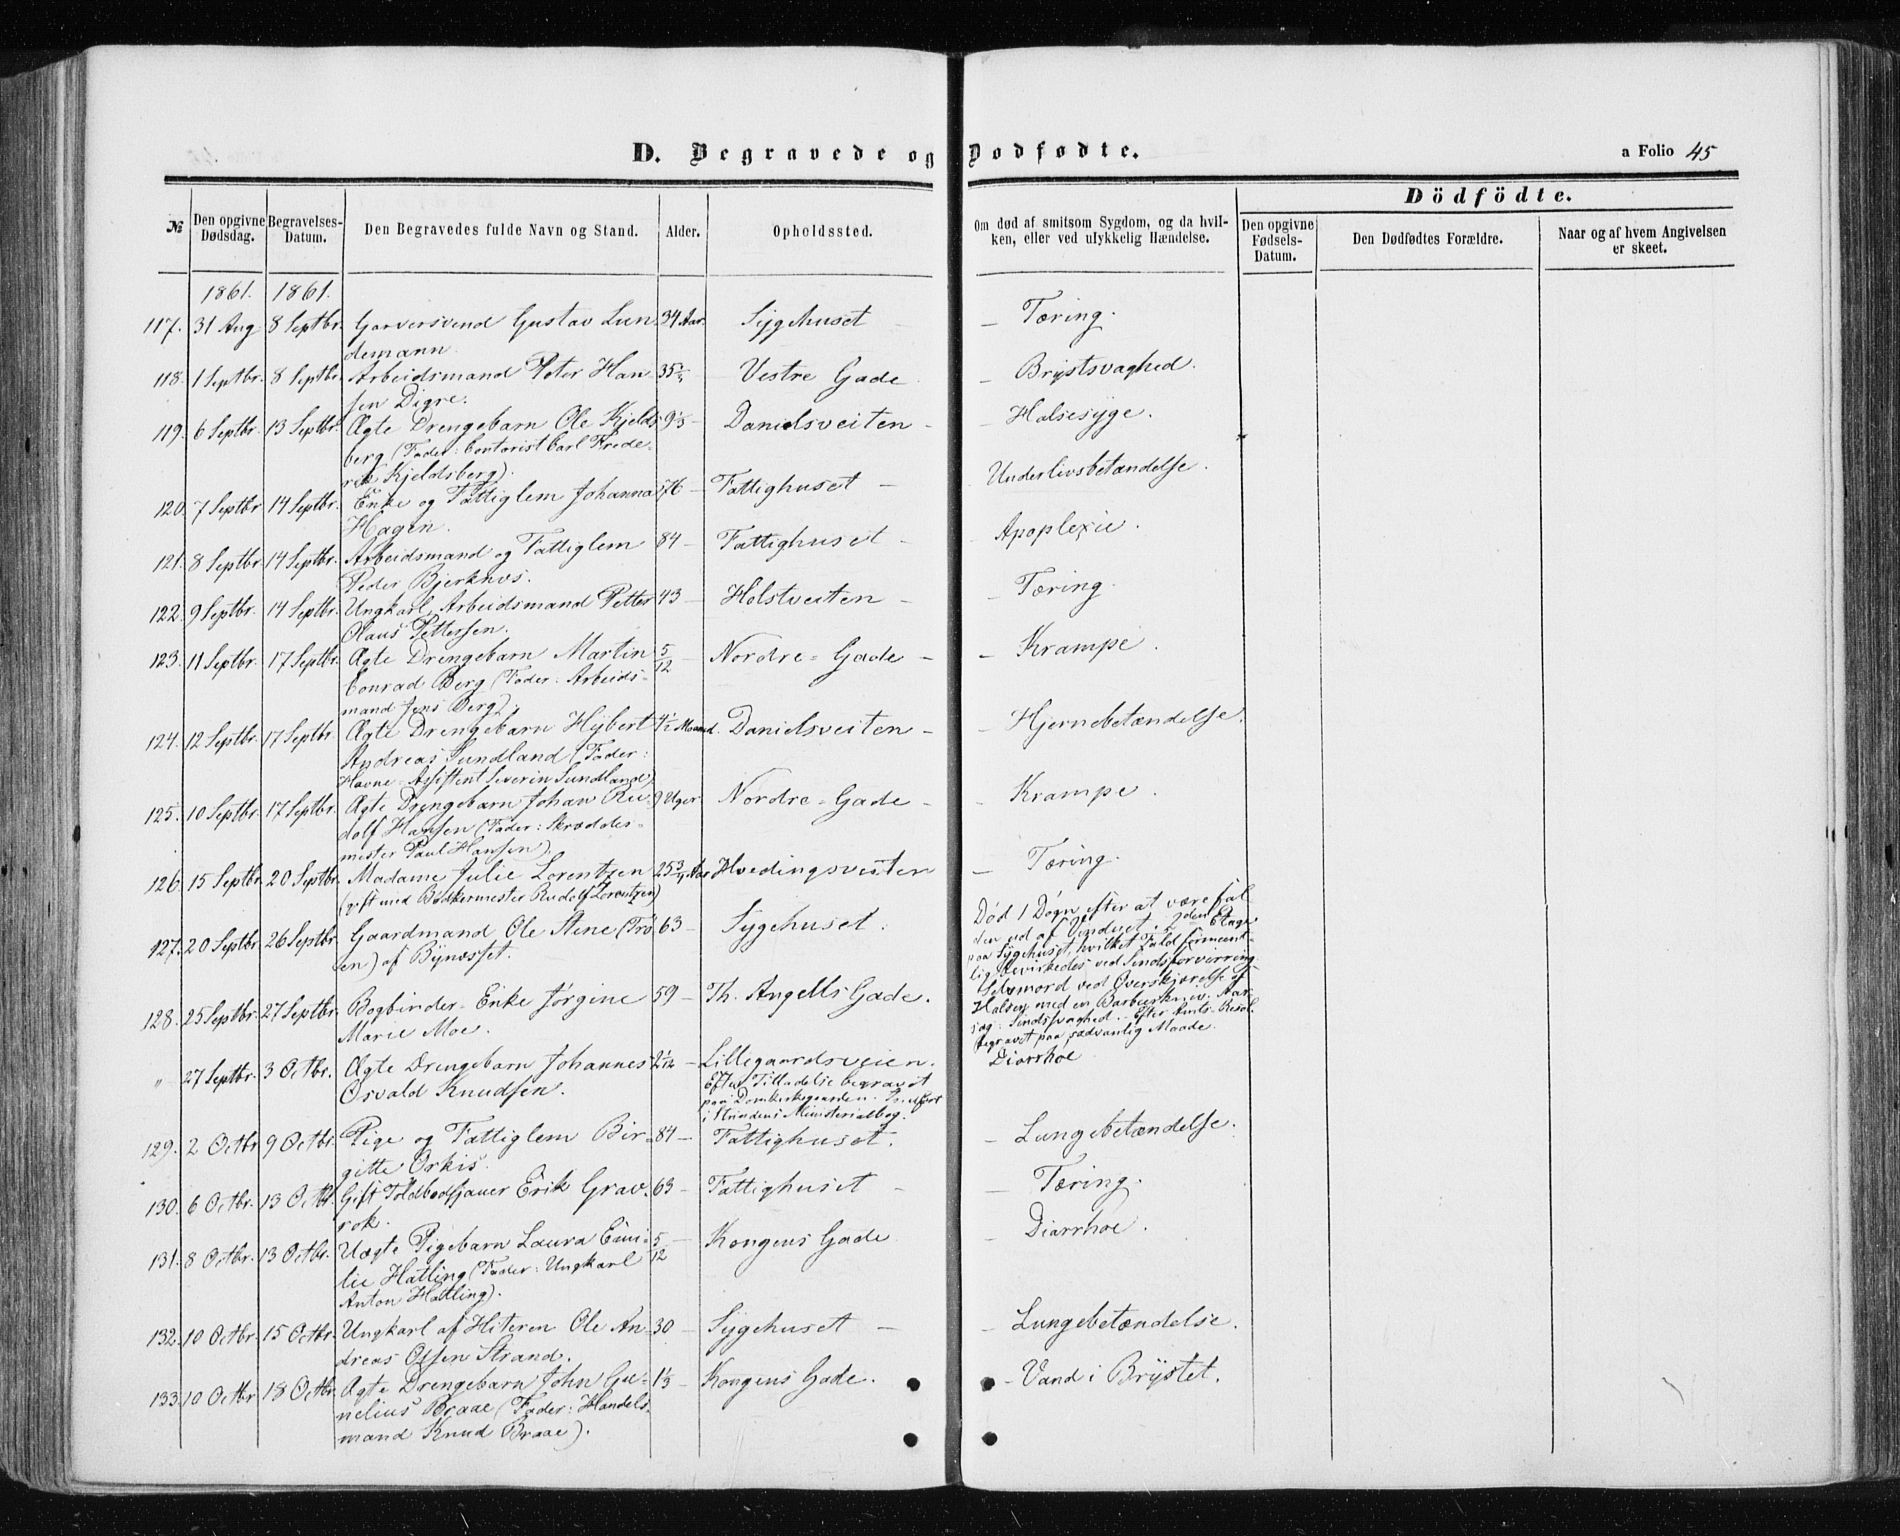 D. Begravede og Dødfødte.
a Folio 45
Dödfödte.
№
Den opgivne Dødsdag.
Begravelses-Datum.
Den Begravedes fulde Navn og Stand.
Alder.
Opholdssted.
Om død af smitsom Sygdom, og da hvil-
ken, eller ved ulykkelig Hændelse.
Den opgivne Fødsels-Datum.
Den Dødfødtes Forældre.
Naar og af hvem Angivelsen
er skeet.
1861. 1861.
117. 31 Aug 8 Septbr. Garversvend Gustav Lun 34 Aar. Sygehuset – Tæring.
demann.
118. 1 Septbr. 8 Septbr. Arbeidsmand Peter Han 35 Vestre Gade – Brystsvaghed.
sen Digre.
119. 6 Septbr. 13 Septbr. Ægte Drengebarn Ole Kjelds 9 Danielsveiten – – Halsesyge.
berg (Fader: Contorist Carl Frede-
rik Kjeldsberg).
120. 7 Septbr 14 Septbr. Enke og Fattiglem Johanna 76 – Fattighuset – Underlivsbetændelse.
Hagen.
121. 8 Septbr. 14 Septbr. Arbeidsmand og Fattiglem 84 – Fattighuset – – Apoplexie.
Peder Bjerknes.
122. 9 Septbr. 14 Septbr. Ungkarl, Arbeidsmand Petter 43 – Holstveiten – – Tæring.
Olaus Pettersen.
123. 11 Septbr. 17 Septbr. Ægte Drengebarn Martin 5/12 – Nordre-Gade – – Krampe.
Conrad Berg (Fader: Arbeids-
mand Jens Berg).
124. 12 Septbr. 17 Septbr. Ægte Drengebarn Hybert 4½ Maaned. Danielsveiten – – Hjernebetændelse.
Andreas Sundland (Fader:
Havne-Assistent Severin Sundland)
125. 10 Septbr. 17 Septbr. Ægte Drengebarn Johan Ru- 9 Uger. Nordre-Gade – – Krampe.
dolf Hansen (Fader: Skrædder-
mester Paul Hansen).
126. 15 Septbr. 20 Septbr. Madame Julie Lorentzen 25 3/4 Aar Hvedingsveiten – Tæring.
(gift med Bødkermester Rudolf Lorentzen)
127. 20 Septbr. 26 Septbr. Gaardmand Ole Stene (Trø 63 – Sygehuset.
en) af Bynæsset.
Død 1 Døgn efter at være fal
den ud af Vinduet i 2den Etage
paa Sygehuset, hvilket Fald formeent-
lig bevirkedes ved Sindsforvirring.
128. 25 Septbr. 27 Septbr. Bogbinder-Enke Jørgine 59 – Th. Angells Gade.
Marie Moe.
Selvmord ved Overskjærelse af
Halsen med en Barbeerkniv. Aar-
sag: Sindssvaghed. – Efter Amts-Resol.
begravet paa sædvanlig Maade.
" 27 Septbr. 3 Octbr. Ægte Drengebarn Johannes 2 1/12 – Lillegaardsveien. Diarrhoe
Osvald Knudsen.
Efter Tilladelse begravet
paa Domkirkegaarden. Indført
i Strindens Ministerialbog.
129. 2 Octbr 9 Octbr. Pige og Fattiglem Bir- 84 – Fattighuset. – Lungebetændelse.
gitte Orkis.
130. 6 Octbr. 13 Octbr Gift Toldbodsjauer Erik Grav- 63 – Fattighuset – – Tæring.
rok.
131. 8 Octbr. 13 Octbr. Uægte Pigebarn Laura Emi- 5/12 – Kongens Gade – Diarrhoe.
lie Hatling (Fader: Ungkarl
Anton Hatling).
132. 10 Octbr. 15 Octbr. Ungkarl af Hiteren Ole An- 30 – Sygehuset – – Lungebetændelse.
dreas Olsen Strand.
133. 10 Octbr 18 Octbr. Ægte Drengebarn John Cor- 1 – Kongens Gade. – Vand i Brystet.
nelius Braae (Fader: Handels-
mand Knud Braae).